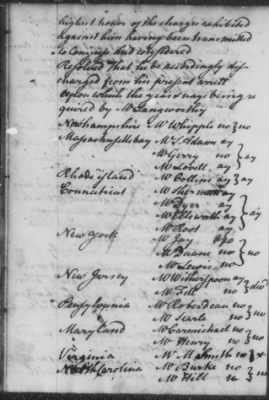 highest honor of the charges exhibited
against him having been transmitted
to Congress and considered
Resolved That he be accordingly dis-
charged from his present arrest
Upon which the yeas & nays being re
quired by Mr Langworthy
Newhampshire Mr Whipple no } no
Massachusettsbay Mr S. Adams ay
Mr Gerry no } ay
Mr Lovell ay
Rhode island Mr Collins ay } ay
Connecticut Mr Sherman ay
Mr Dyer ay
Mr Ellsworth ay } ay
Mr Root ay
New York Mr Jay
Mr Duane no } no
Mr Lewis no
New Jersey Mr Witherspoon ay
Mr Fell no
Pensylvania Mr Roberdeau no
Mr Searle no } no
Maryland Mr Carmichael no
Mr Henry no } no
Virginia Mr M Smith no
North Carolina Mr Burke no
Mr Hill no } no